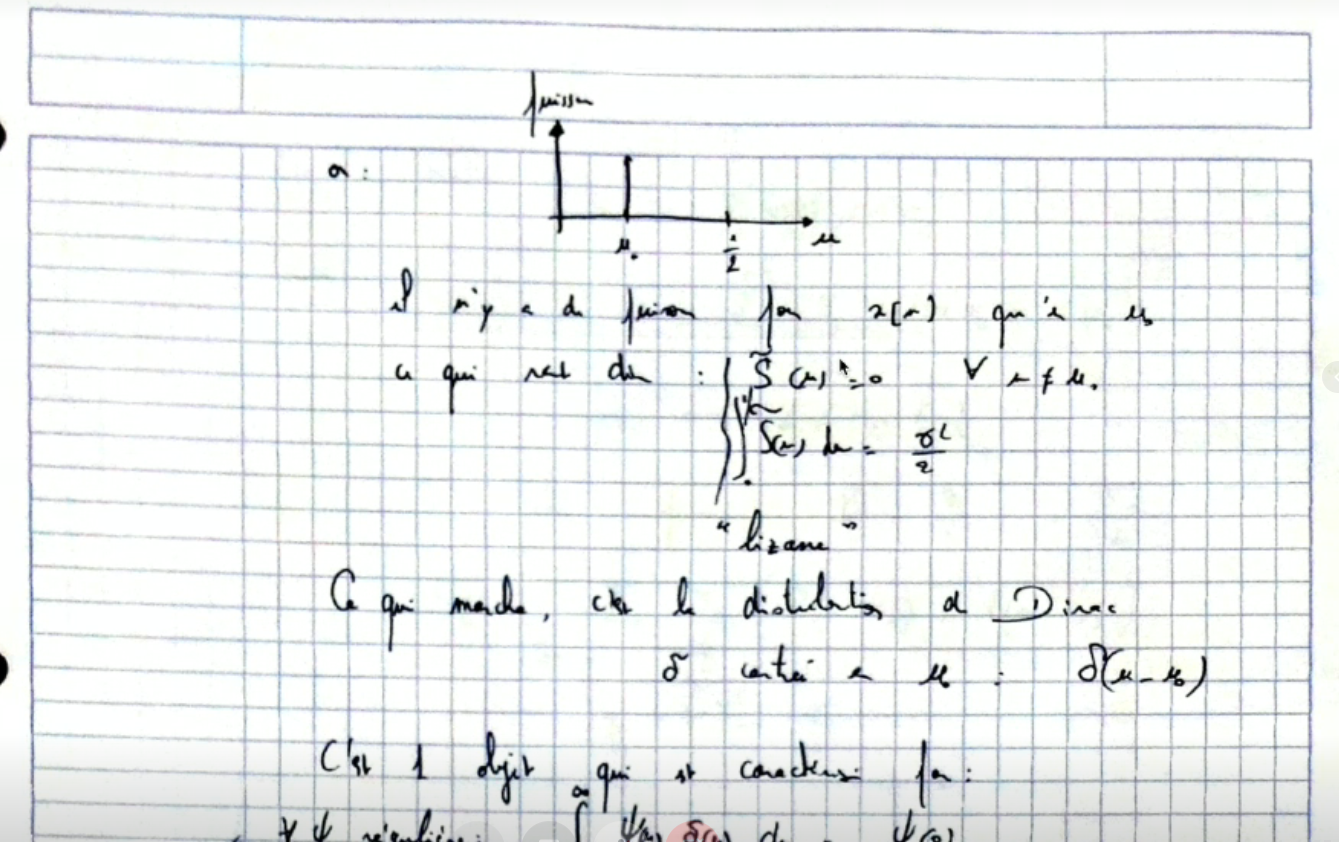 puissance
or :
μ₀ 1/2 μ
il n'y a de puissance pour x[n] qu'en μ₀
ce qui veut dire : S̃(μ) = 0 ∀ μ ≠ μ₀
∫ S̃(μ) dμ = σ²/2
"bizarre"
Ce qui marche, c'est la distribution de Dirac
δ centrée en μ₀ : δ(μ - μ₀)
C'est 1 objet qui est caractérisé par :
∀ ψ régulière : ∫ ψ(μ) δ(μ) dμ = ψ(0)